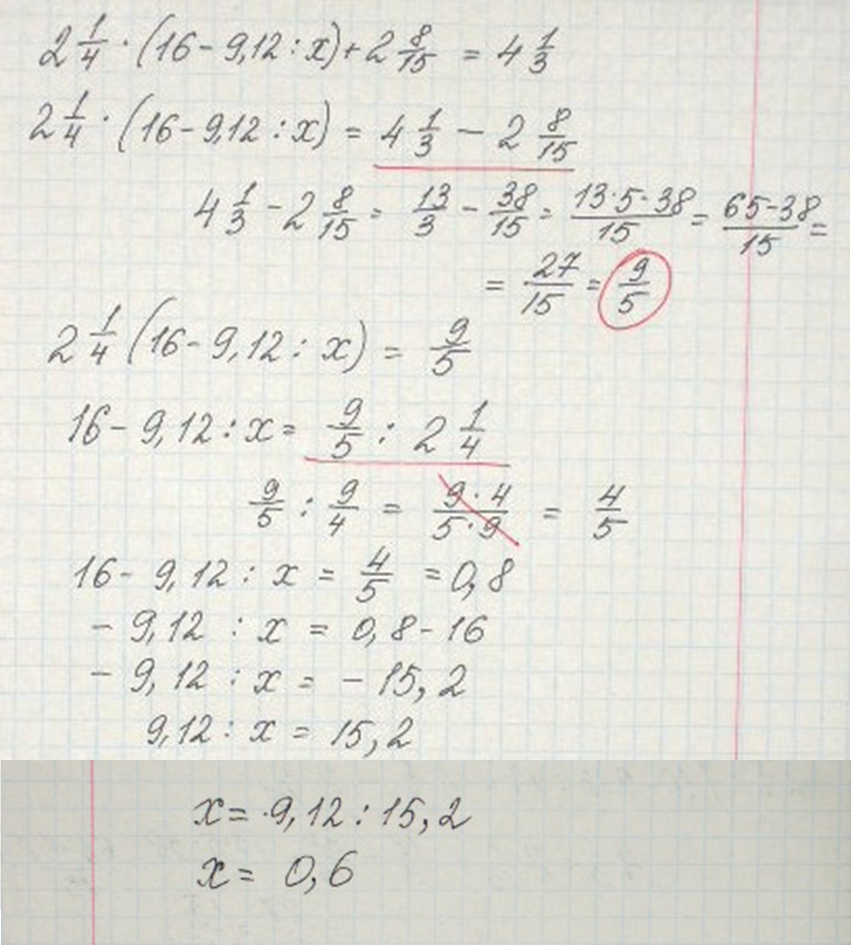 2 1/4 · (16 - 9,12 : x) + 2 8/15 = 4 1/3
2 1/4 · (16 - 9,12 : x) = 4 1/3 - 2 8/15
4 1/3 - 2 8/15 = 13/3 - 38/15 = 13·5-38/15 = 65-38/15 =
= 27/15 = 9/5
2 1/4 (16 - 9,12 : x) = 9/5
16 - 9,12 : x = 9/5 : 2 1/4
9/5 : 9/4 = 9·4/5·9 = 4/5
16 - 9,12 : x = 4/5 = 0,8
- 9,12 : x = 0,8 - 16
- 9,12 : x = - 15,2
9,12 : x = 15,2
x = 9,12 : 15,2
x = 0,6